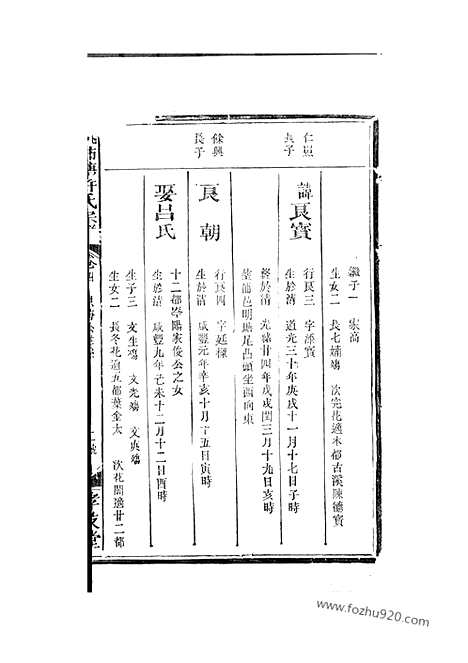 繼子一 宏高
生女二 長七娟殤 次完花適本都古溪陳德寶
仁照
長子
諱良寶
行良三 字添寶
生於清 道光三十年庚戌十一月十七日子時
終於清 光緒廿四年戊戌閏三月十九日亥時
葬浦邑明塘尾凸頭坐西向東
餘興
長子
良朝
行良四 字廷樑
生於清 咸豐元年辛亥十月十五日寅時
娶呂氏
十二都岑陽宏俊公之女
生於清 咸豐九年己未十二月十二日酉時
生子三 文生殤 文光殤 文典殤
生女二 長冬花適五都葉金太 次花開適廿二都
許氏宗
孝友堂
www.fozhu920.com